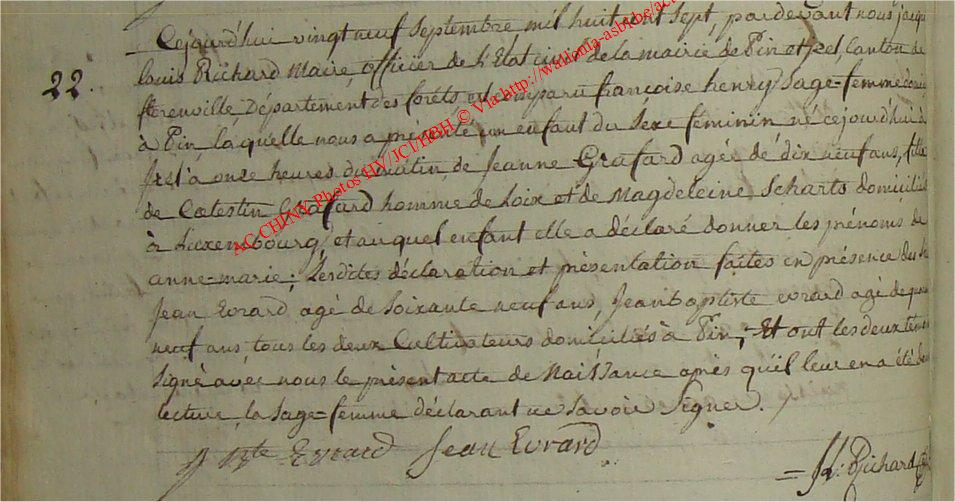 Cejourd'hui vingt neuf Septembre mil huit cent sept, pardevant nous jacque
22. louis Richard Maire, officier de l'Etat civil de la mairie de Pin et Izel, Canton de
fleurenville Département des forêts est comparu françoise henry Sage=femme
à Pin, laquelle nous a présenté un enfant du Sexe feminin né cejourd'hui à
Izel à onze heures du matin, de Jeanne Grafard agée de dix neuf ans, fille
de Cœlestin Grafard homme de Loix et de Magdeleine Scharts domiciliés
à Luxembourg, et auquel enfant elle a déclaré donner les prénoms de
anne=marie; Lesdites déclaration et présentation faites en présence de
Jean Evrard agé de Soixante neuf ans, Jean baptiste evrard agé de
neuf ans, tous les deux Cultivateurs domiciliés à Pin, Et ont les deux témoins
Signé avec nous le présent acte de Naissance après qu'il leur en a été
lecture, la Sage=femme déclarant ne Savoir Signer.
J Bte Evrard Jean Evrard
Richard
AC CHINY Photos HV/JCT/HBH © Via http://wallonia-asbl.be/ac